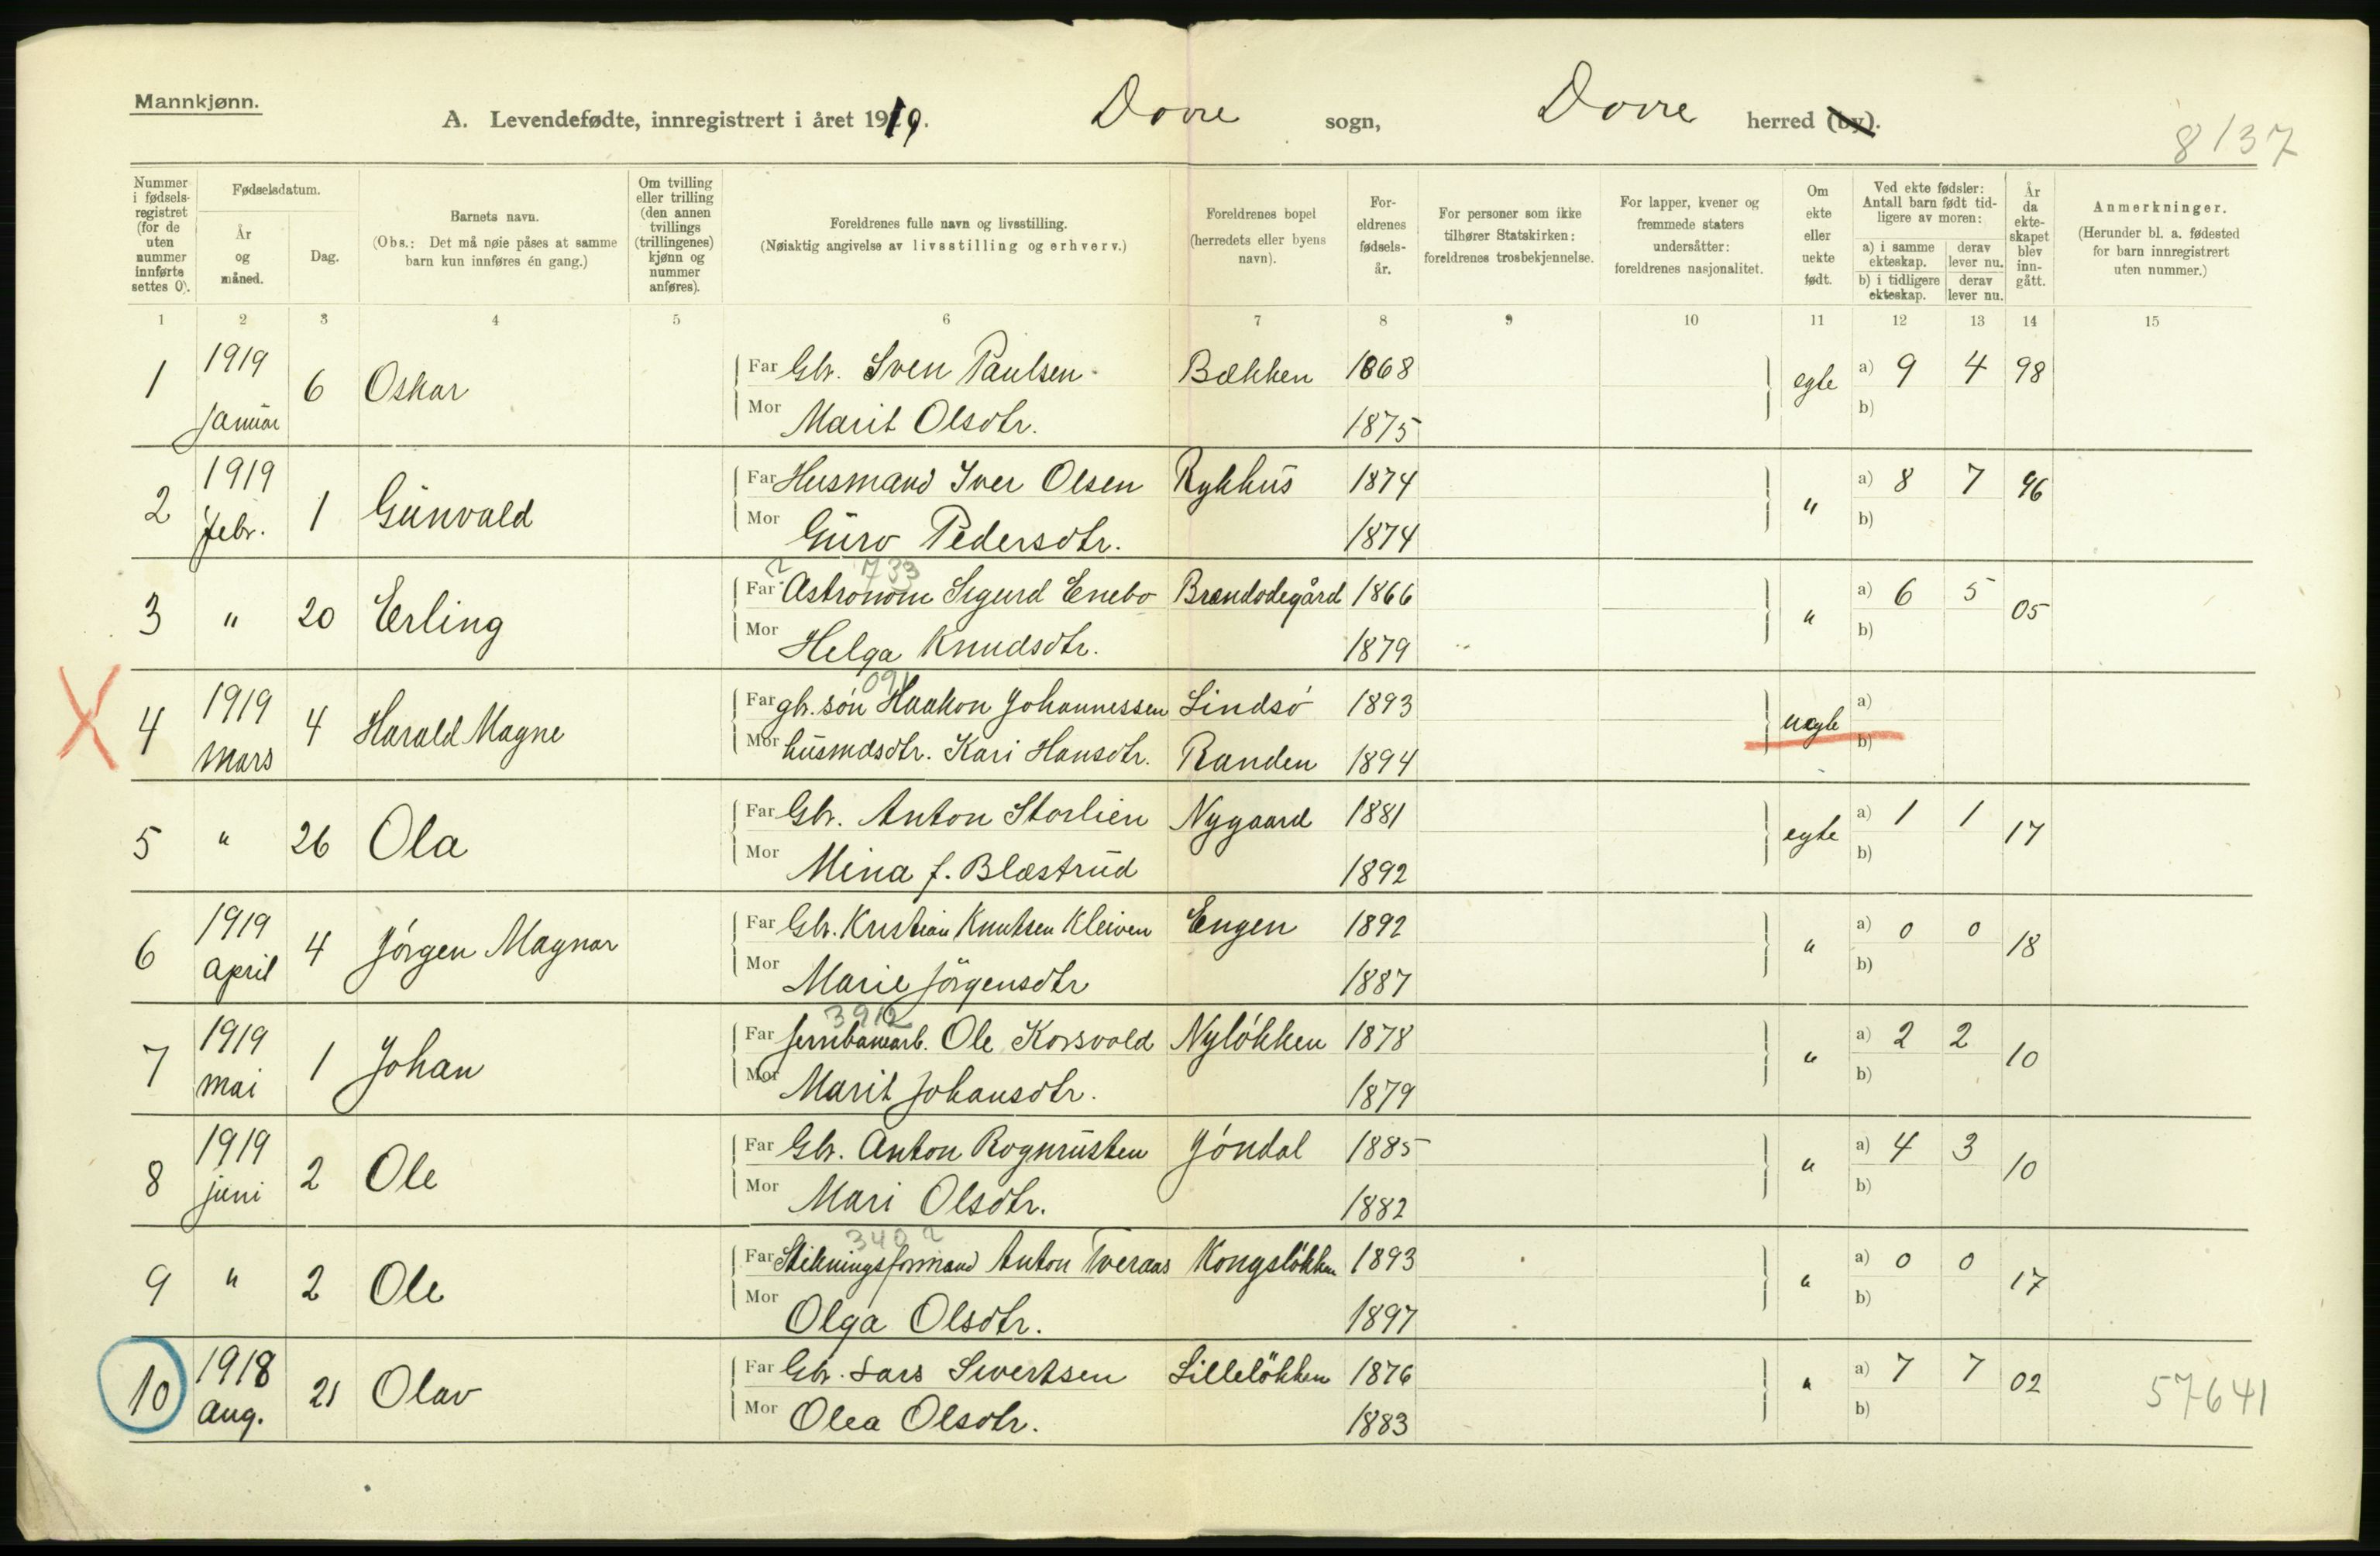 Mannkjønn.
A. Levendefødte, innregistrert i året 1919. Dovre sogn, Dovre herred (by).
8137
Nummer i fødsels-registret (for de uten nummer innførte settes 0).
Fødselsdatum.
År og måned.
Dag.
Barnets navn.
(Obs.: Det må nøie påses at samme barn kun innføres én gang.)
Om tvilling eller trilling (den annen tvillings (trillingenes) kjønn og nummer anføres).
Foreldrenes fulle navn og livsstilling.
(Nøiaktig angivelse av livsstilling og erhverv.)
Foreldrenes bopel (herredets eller byens navn).
For-eldrenes fødsels-år.
For personer som ikke tilhører Statskirken: foreldrenes trosbekjennelse.
For lapper, kvener og fremmede staters undersåtter: foreldrenes nasjonalitet.
Om ekte eller uekte født.
Ved ekte fødsler: Antall barn født tid-ligere av moren:
a) i samme ekteskap. derav lever nu.
b) i tidligere ekteskap. derav lever nu.
År da ekte-skapet blev inn-gått.
Anmerkninger.
(Herunder bl. a. fødested for barn innregistrert uten nummer.)
1 2 3 4 5 6 7 8 9 10 11 12 13 14 15
1 1919 januar 6 Oskar Far Gbr. Sven Paulsen Bækken 1868 egte a) 9 4 98
Mor Marit Olsdtr. 1875 b)
2 1919 febr. 1 Gunvald Far Husmand Iver Olsen Rykhus 1874 " a) 8 7 96
Mor Guro Pedersdtr. 1874 b)
733
3 " 20 Erling Far Astronom Sigurd Enebo Brændodegård 1866 " a) 6 5 05
Mor Helga Knudsdtr. 1879 b)
091
4 1919 Mars 4 Harald Magne Far gbr. søn Haakon Johannessen Lindsø 1893 uegte a)
Mor husmdsdtr. Kari Hansdtr. Randen 1894 b)
5 " 26 Ola Far Gbr. Anton Storlien Nygaard 1881 egte a) 1 1 17
Mor Mina f. Blæstrud 1892 b)
6 1919 april 4 Jørgen Magnar Far Gbr. Kristian Knutsen Kleiven Engen 1892 " a) 0 0 18
Mor Marie Jörgensdtr 1887 b)
3912
7 1919 mai 1 Johan Far Jernbanearb. Ole Korsvold Nyløkken 1878 " a) 2 2 10
Mor Marit Johansdtr. 1879 b)
8 1919 juni 2 Ole Far Gbr. Anton Rognrusten Jøndal 1885 " a) 4 3 10
Mor Mari Olsdtr. 1882 b)
3402
9 " 2 Ole Far Stikningsformand Anton Tveraas Kongsløkken 1893 " a) 0 0 17
Mor Olga Olsdtr. 1897 b)
10 1918 aug. 21 Olav Far Gbr. Lars Sivertsen Lilleløkken 1876 " a) 7 7 02 57641
Mor Olea Olsdtr. 1883 b)